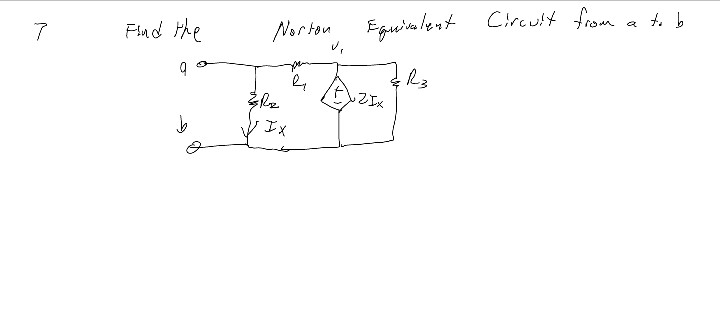 7 Find the Norton Equivalent Circuit from a to b
V1
a
R1
R3
R2
+
-
2Ix
b
Ix